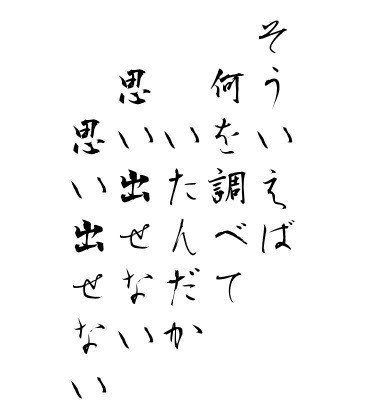 そういえば
何を調べて
いたんだか
思い出せない
思い出せない